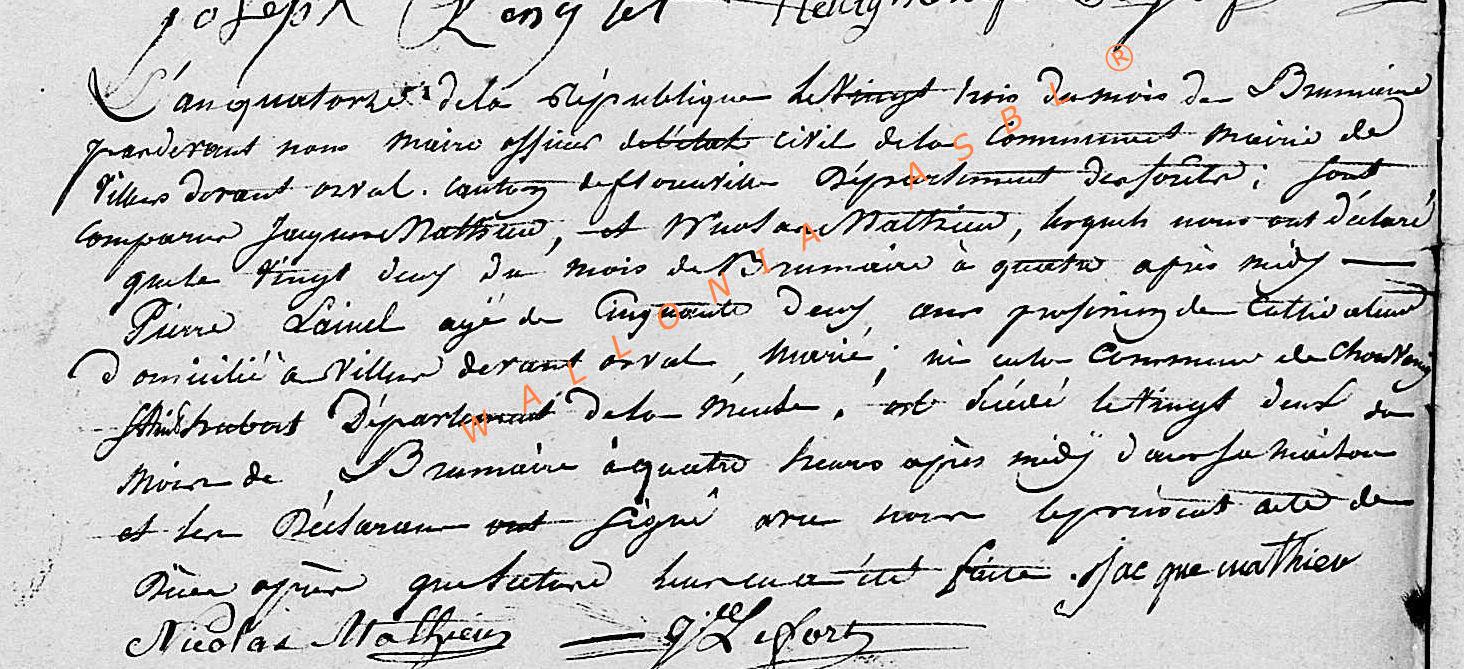 joseph
L'an quatorze de la République le vingt trois du mois de Brumaire
pardevant nous maire officier de l'état civil de la Commune et mairie de
Villers devant orval. Canton de florenville Département des forêts; sont
Comparus Jacque Mathieu, et Nicolas Mathieu, lesquels nous ont déclaré
que le vingt deux du mois de Brumaire à quatre après midy
Pierre agé de Cinquante deux ans profession de Cultivateur
domicilié à Viller devant orval, Marié; né en la Commune de
Département de la Meuse, est décédé le vingt deux du
Mois de Brumaire à quatre heures après midÿ dans sa Maison
et les Déclarans ont signé avec nous le présent acte de
Décè après que lecture leur en a été faite. Jacque mathieu
Nicolas Mathieu Lefort
WALLONIA ASBL ®